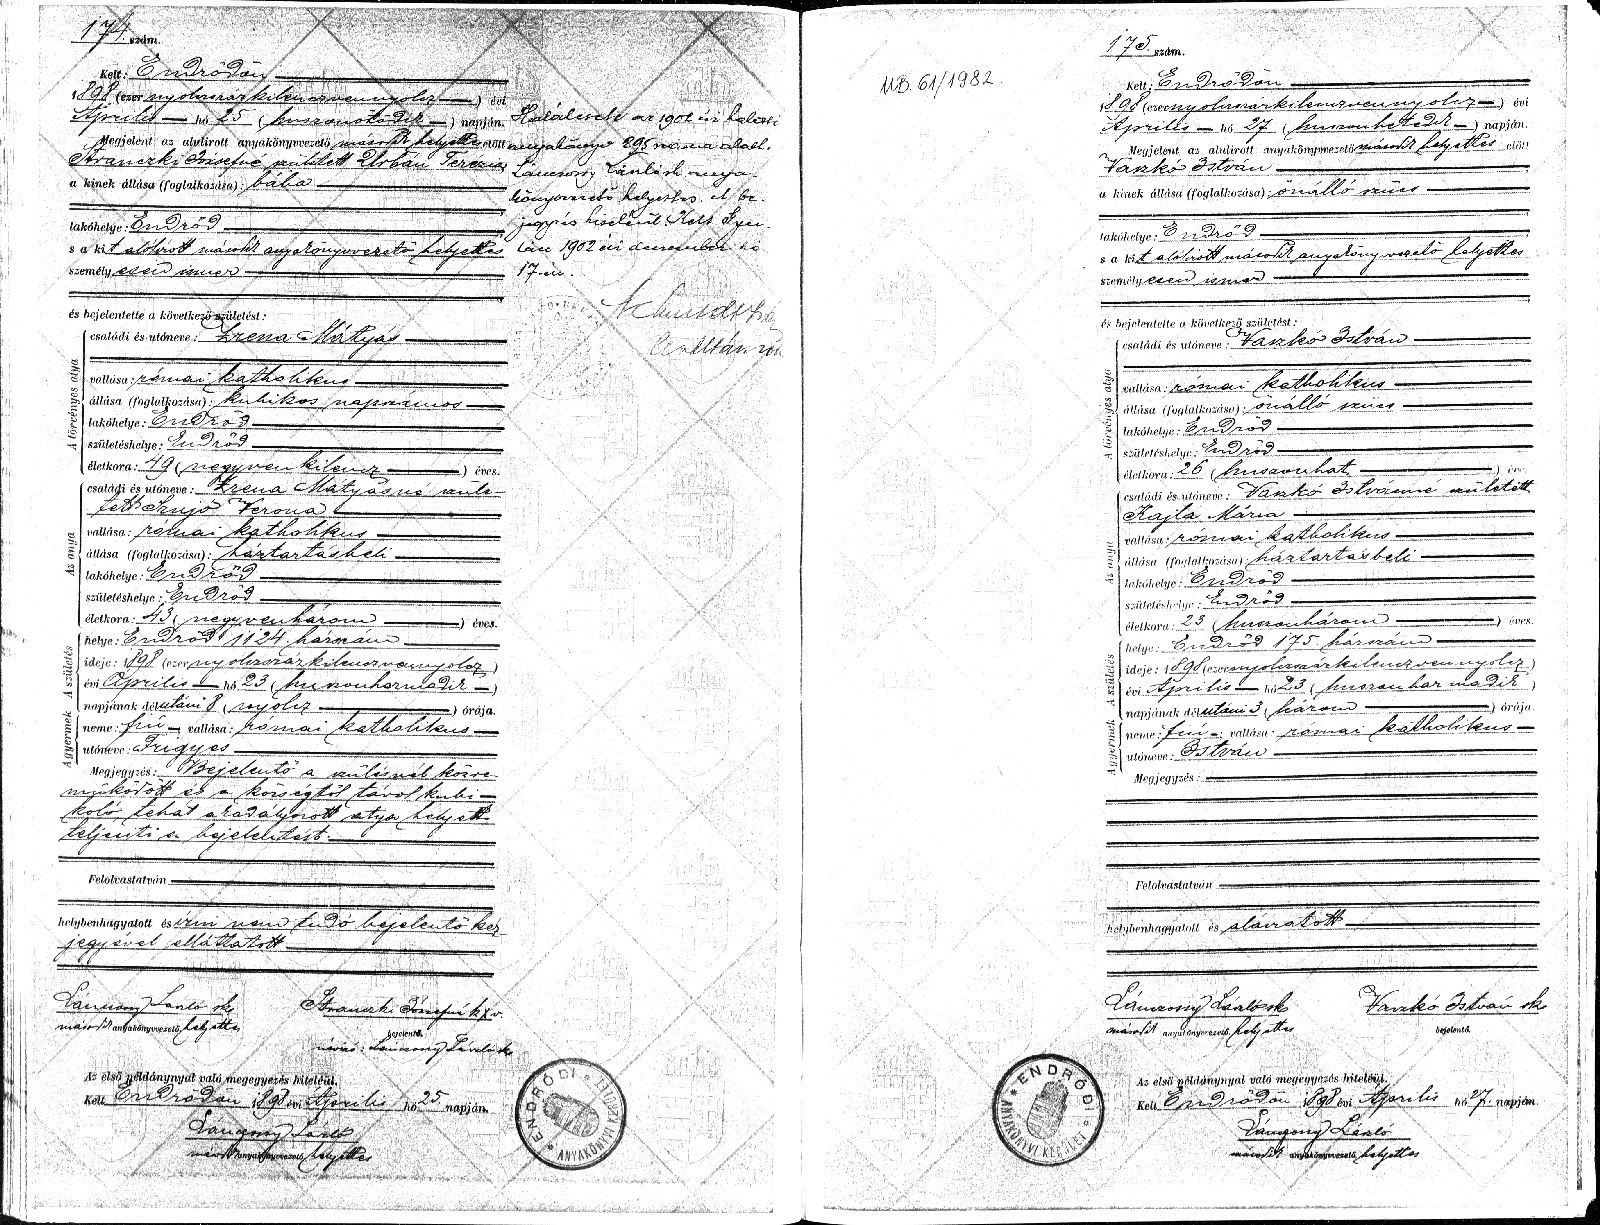 174. szám.
Kelt: Endrődön
1898 (ezer nyolcszázkilenczvennyolcz) évi
Április hó 25 (huszonötödik) napján.
Megjelent az alulirott anyakönyvvezető másodk helyettes előtt
Józsefné született Urbán Terézia
a kinek állása (foglalkozása): bába
lakóhelye: Endrőd
s a kit alólirott másodk anyakönyvvezető helyettes
személyesen ismer
és bejelentette a következő születést:
A törvényes atya
családi és utóneve: Mátyás
vallása: római katholikus
állása (foglalkozása): kubikos napszámos
lakóhelye: Endrőd
születéshelye: Endrőd
életkora: 49 (negyvenkilencz) éves.
Az anya
családi és utóneve: Mátyásné szüle-
tett Verona
vallása: római katholikus
állása (foglalkozása): háztartásbeli
lakóhelye: Endrőd
születéshelye: Endrőd
életkora: 43 (negyvenhárom) éves.
A születés
helye: Endrőd 1124 házszám
ideje: 1898 (ezer nyolcszázkilenczvennyolcz)
évi Április hó 23 (huszonharmadik)
napjának délutáni 8 (nyolcz) órája.
A gyermek
neme: fiú vallása: római katholikus
utóneve: Frigyes
Megjegyzés: Bejelentő a szülésnél közre
működött és a községtől távol kubi-
koló, tehát akadályozott atya helyett
teljesíti a bejelentést.
Felolvastatván
helybenhagyatott és irni nem tudó bejelentő kéz-
jegyével elláttatott
Lánczony László sk
másodk anyakönyvvezető helyettes
Józsefné kxv.
bejelentő.
névíró: Lánczony László sk
Az első példánynyal való megegyezés hiteléül.
Kelt Endrődön 1898 évi Április hó 25 napján.
Lánczony László
másodk anyakönyvvezető helyettes
ENDRŐDI ANYAKÖNYVI KERÜLET
Halálesete az 1902 évi halotti
anyakönyv 295 száma alatt.
Lánczony László anya-
könyvvezető helyettes. A be-
jegyzés hiteléül. Kelt Gyu-
lán 1902 évi december hó
17-én.
UB. 61/1982.
175. szám.
Kelt: Endrődön
1898 (ezer nyolcszázkilenczvennyolcz) évi
Április hó 27 (huszonhetedik) napján.
Megjelent az alulirott anyakönyvvezető másodk helyettes előtt
Vaszkó István
a kinek állása (foglalkozása): önálló szűcs
lakóhelye: Endrőd
s a kit alólirott másodk anyakönyvvezető helyettes
személyesen ismer
és bejelentette a következő születést:
A törvényes atya
családi és utóneve: Vaszkó István
vallása: római katholikus
állása (foglalkozása): önálló szűcs
lakóhelye: Endrőd
születéshelye: Endrőd
életkora: 26 (huszonhat) éves.
Az anya
családi és utóneve: Vaszkó Istvánné született
Kajla Mária
vallása: római katholikus
állása (foglalkozása): háztartásbeli
lakóhelye: Endrőd
születéshelye: Endrőd
életkora: 23 (huszonhárom) éves.
A születés
helye: Endrőd 175 házszám
ideje: 1898 (ezer nyolcszázkilenczvennyolcz)
évi Április hó 23 (huszonharmadik)
napjának délutáni 3 (három) órája.
A gyermek
neme: fiú vallása: római katholikus
utóneve: István
Megjegyzés:
Felolvastatván
helybenhagyatott és aláiratott
Lánczony László sk
másodk anyakönyvvezető helyettes
Vaszkó István sk
bejelentő.
Az első példánynyal való megegyezés hiteléül.
Kelt Endrődön 1898 évi Április hó 27. napján.
Lánczony László
másodk anyakönyvvezető helyettes
ENDRŐDI ANYAKÖNYVI KERÜLET